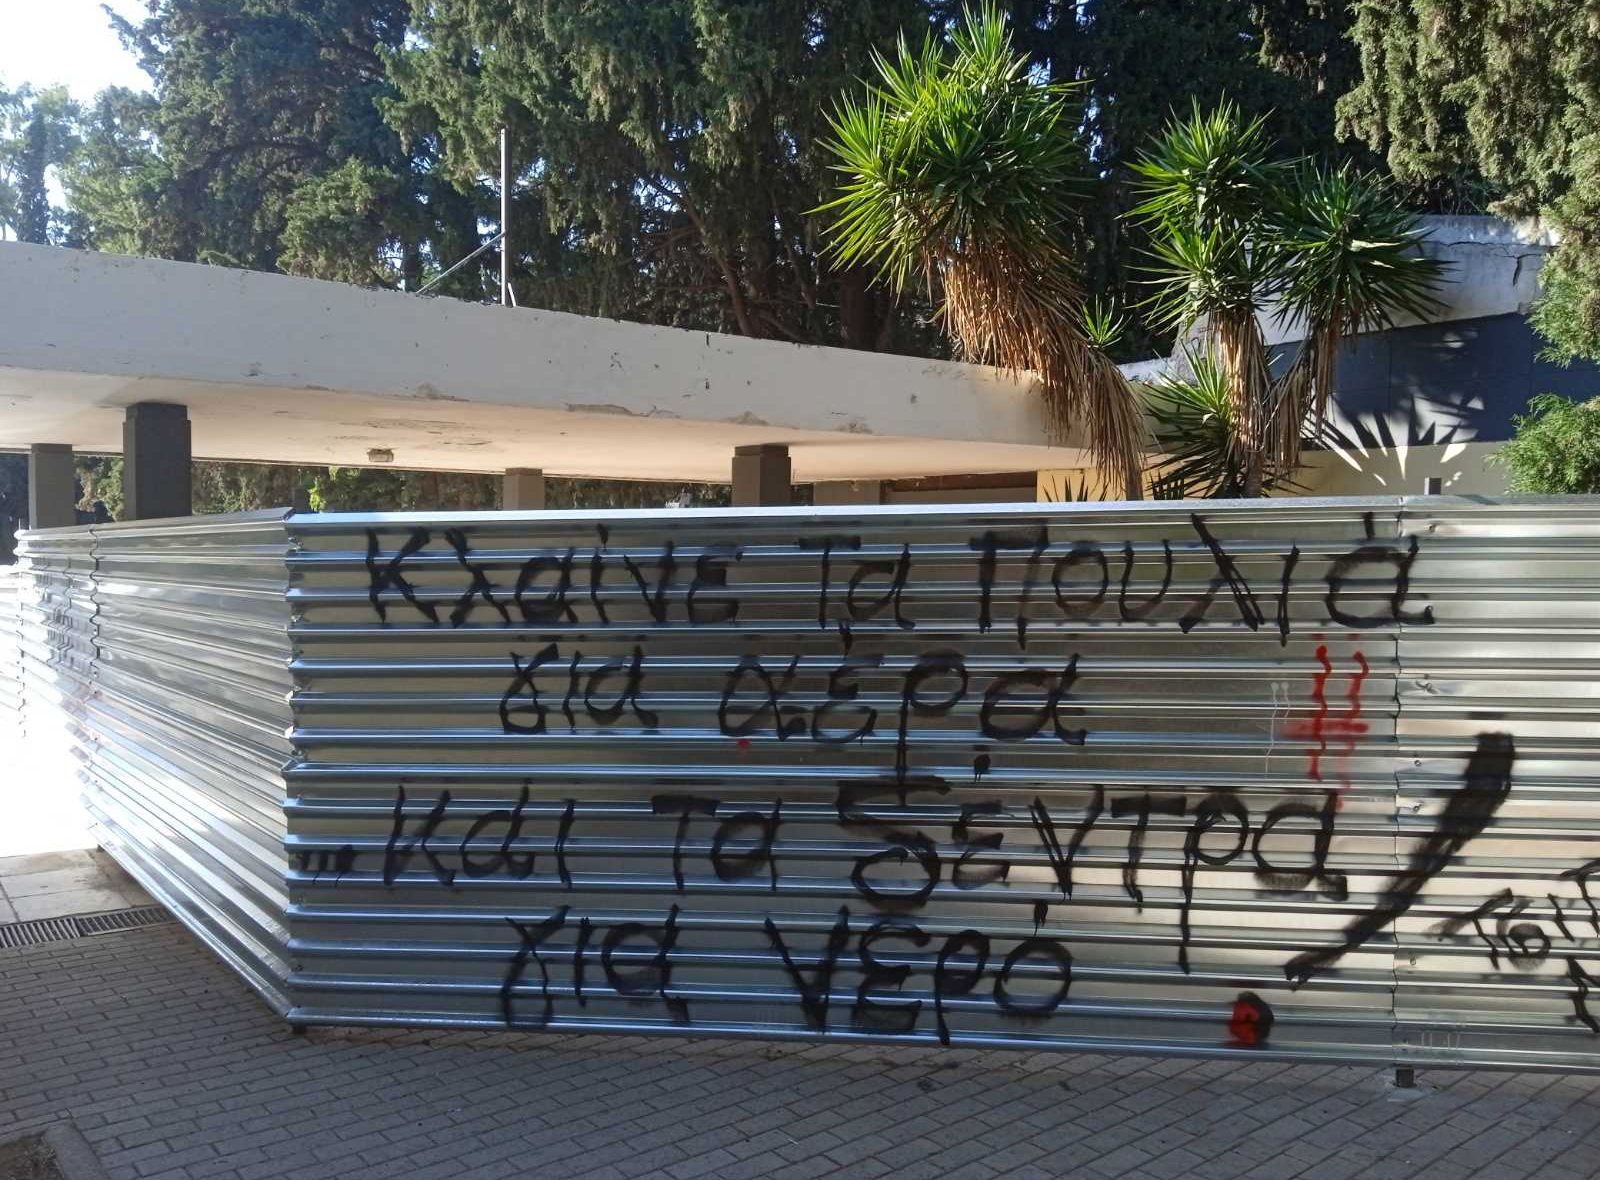 Κλαίνε τα πουλιά
για αέρα
...και τα δεντρα
για νερό !